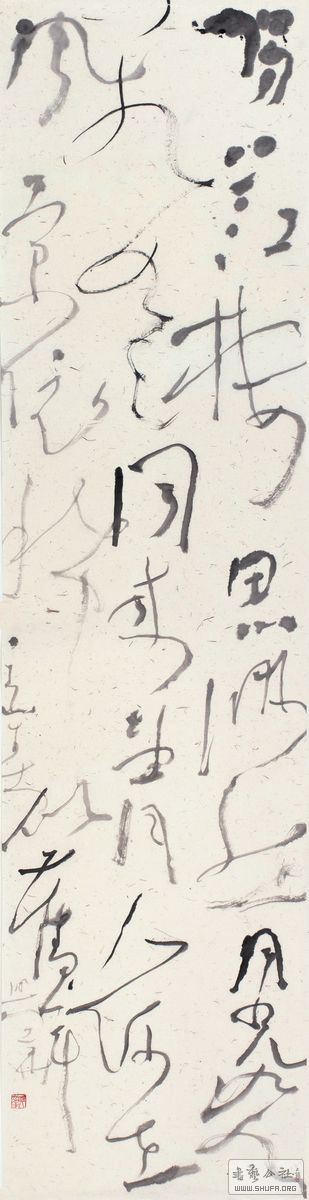 獨江樓思渺然上月光如水
水如天同來望月人何在
風景依稀似舊年
書藝公社
WWW.SHUFA.ORG